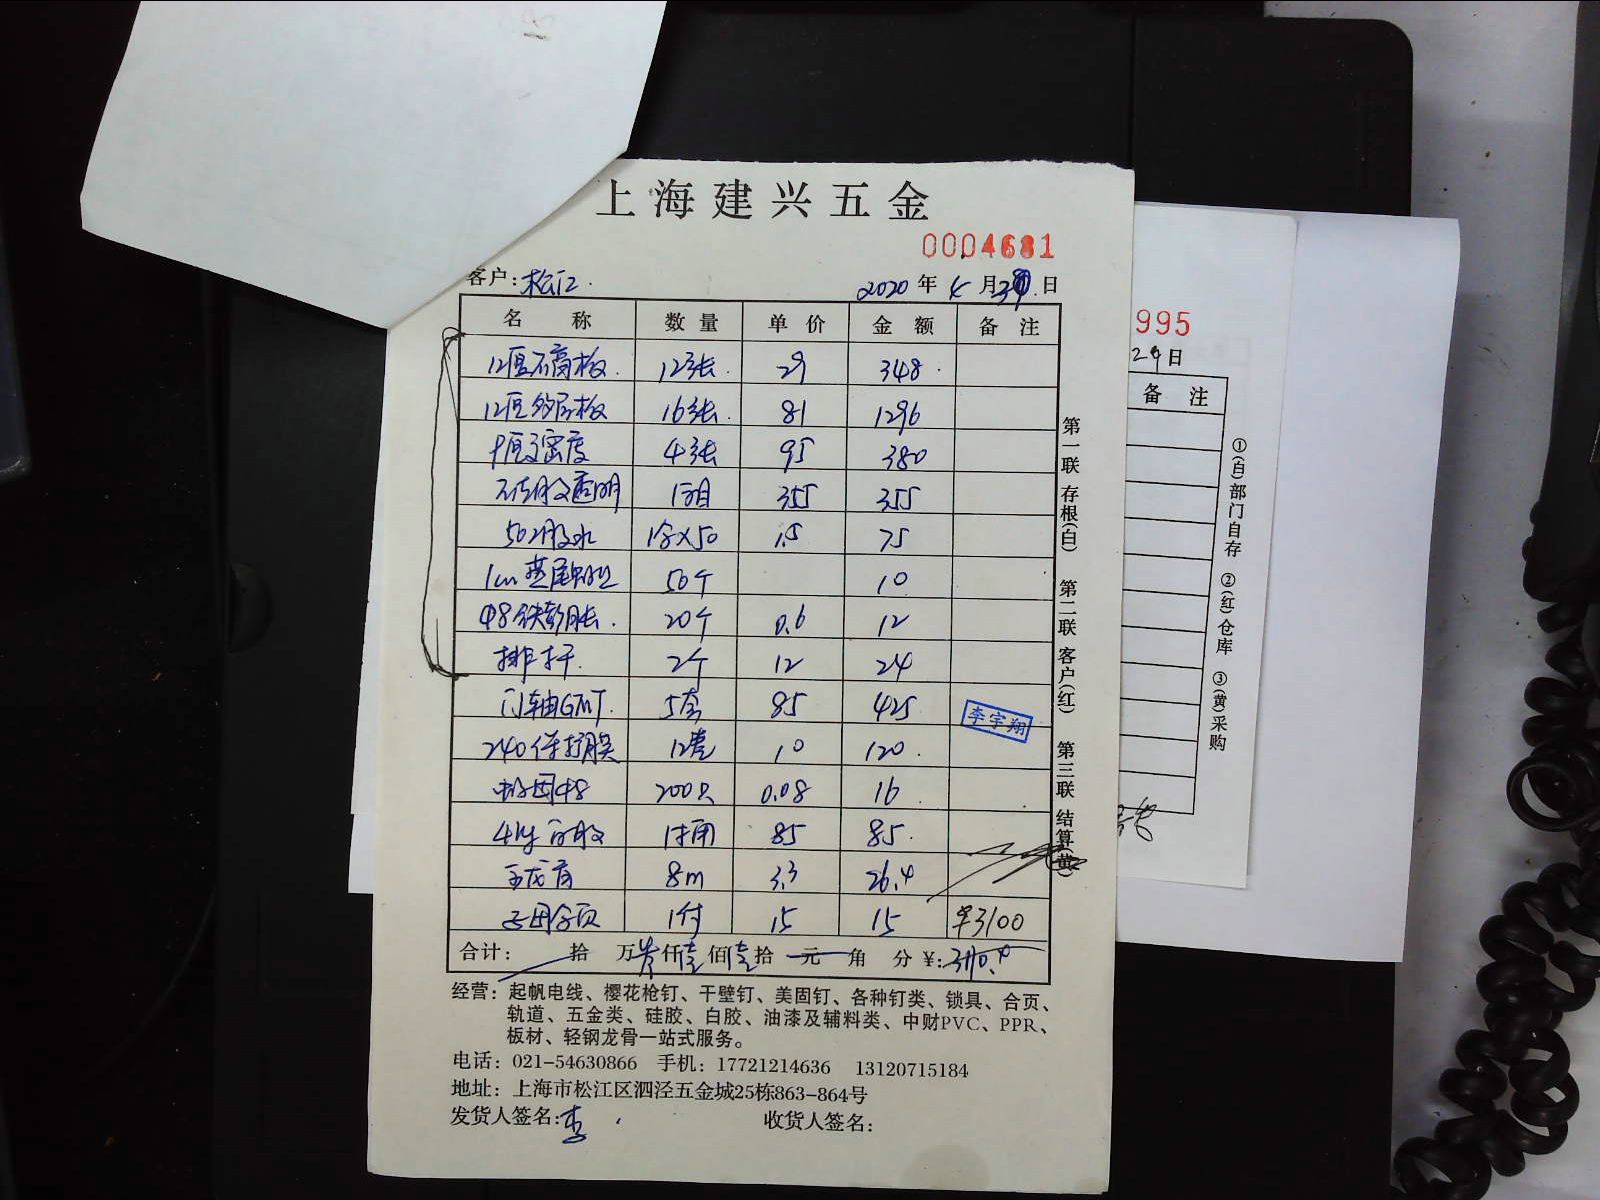 上海建兴五金
0004681
客户: 松江. 2020年4月30日
名称 数量 单价 金额 备注
12厘石膏板. 12张. 29 348.
12厘多层板 16张. 81 1296
9厘密度 4张 95 380
玻胶透明 1箱 355 355
502胶水 1合×50 1.5 75
1cm燕尾 50个 10
Φ8铁彭胀. 20个 0.6 12
排干. 2个 12 24
门轴GMT. 5套 85 425
李宇翔
240保护膜 12卷 10 120.
Φ8 200只 0.08 16
4kg 1桶 85 85.
8m 3.3 26.4
合页 1付 15 15 ¥3100
合计: 拾 万 仟壹佰壹拾 元 角 分 ¥:
经营: 起帆电线、樱花枪钉、干壁钉、美固钉、各种钉类、锁具、合页、
轨道、五金类、硅胶、白胶、油漆及辅料类、中财PVC、PPR、
板材、轻钢龙骨一站式服务。
电话: 021-54630866 手机: 17721214636 13120715184
地址: 上海市松江区泗泾五金城25栋863-864号
发货人签名: 李 收货人签名:
第一联 存根(白) 第二联 客户(红) 第三联 结算(黄)
995
29日
备注
①(白)部门自存 ②(红)仓库 ③(黄)采购